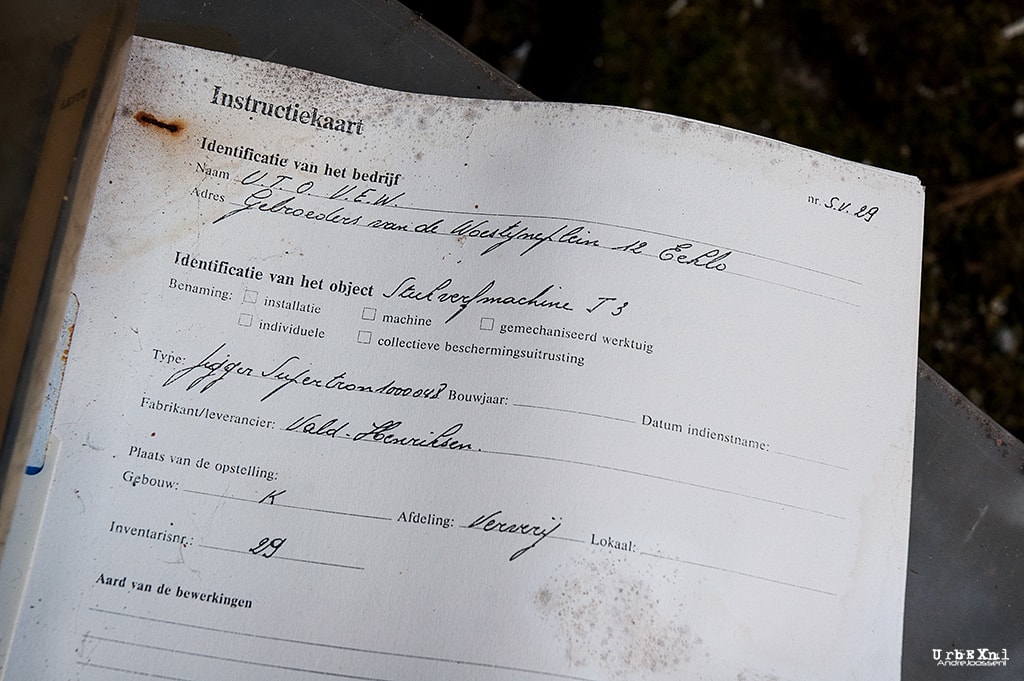 Instructiekaart
Identificatie van het bedrijf
nr. S.V. 29
Naam U.T.O. V.E.W.
Adres Gebroeders van de Woestyneplein 12 Eeklo
Identificatie van het object Stukverfmachine T3
Benaming: installatie machine gemechaniseerd werktuig
individuele collectieve beschermingsuitrusting
Type: Jigger Supertron 1000048 Bouwjaar: Datum indienstname:
Fabrikant/leverancier: Vald-Henriksen.
Plaats van de opstelling:
Gebouw: K Afdeling: Ververij Lokaal:
Inventarisnr.: 29
Aard van de bewerkingen
UrbEXnl
AndreJoosse.nl